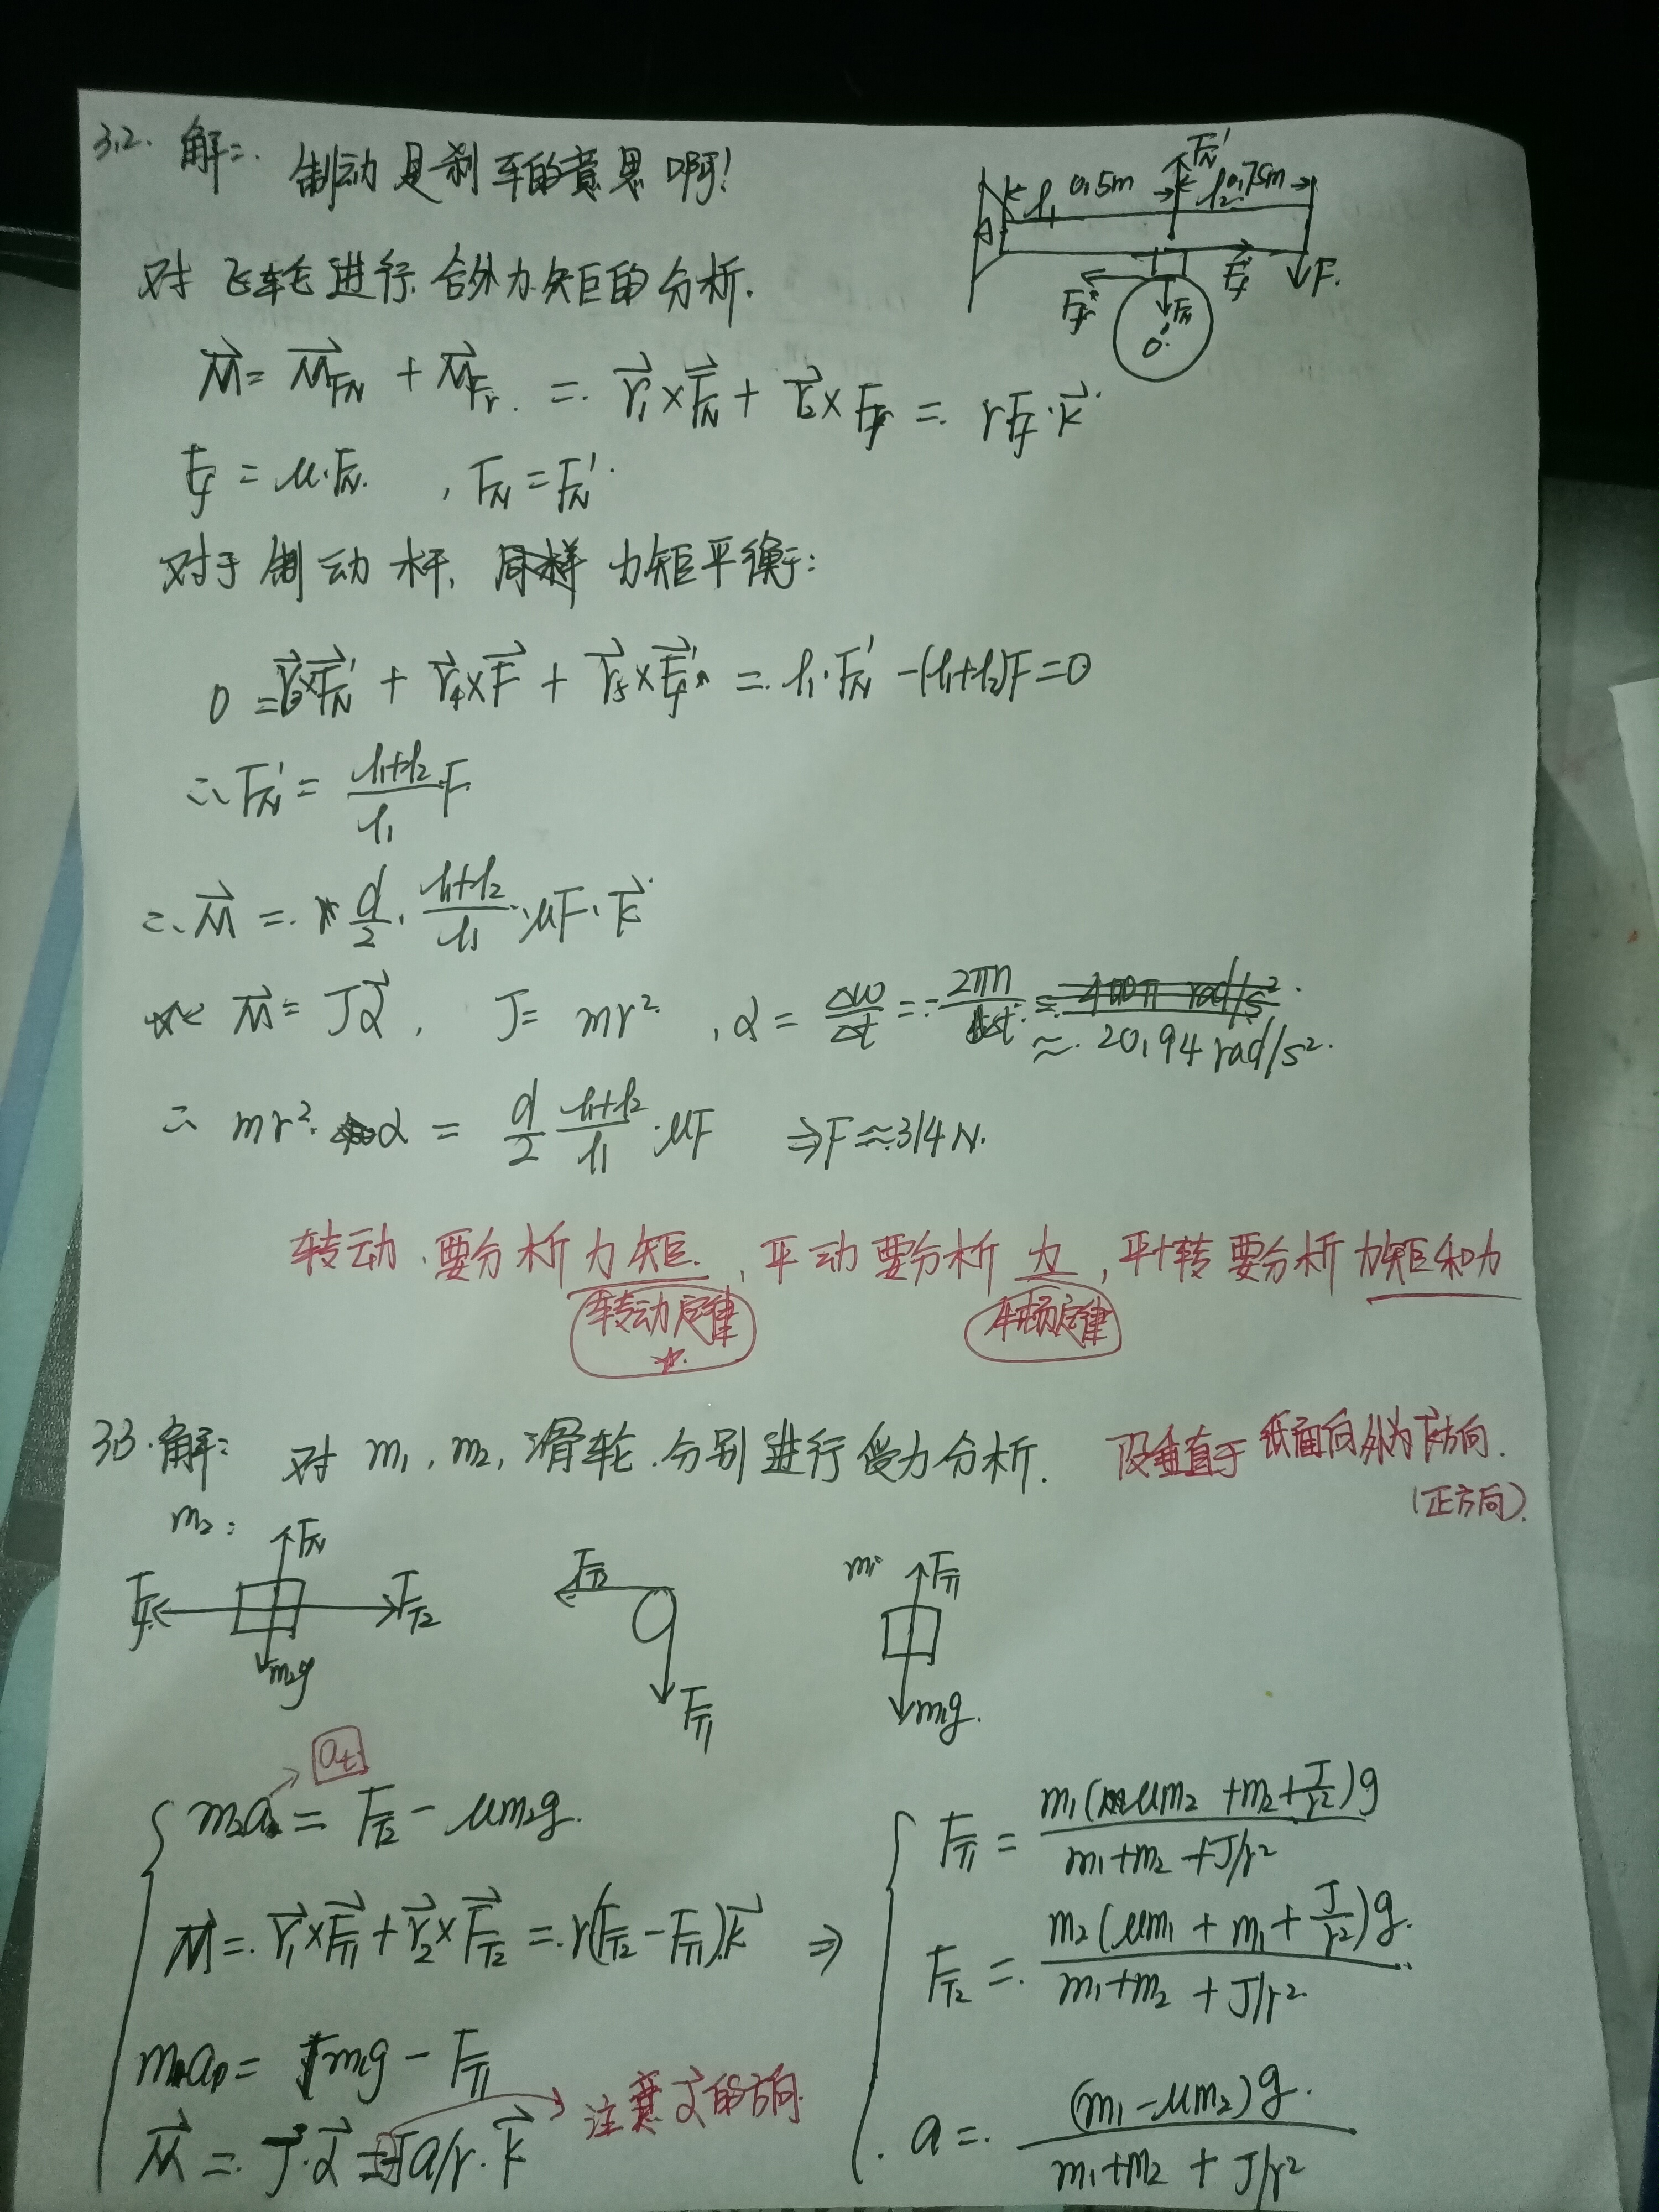 3.2. 解: 制动是刹车的意思啊!
l₁ 0.5m l₂ 0.75m
F_N' A F_f' F_f F_N F O
对飞轮进行合外力矩的分析.
M⃗ = M⃗_FN + M⃗_Fr = r⃗₁×F⃗_N + r⃗₂×F_f = rF_f·k⃗
F_f = μ·F_N , F_N = F_N'
对于制动杆, 同样力矩平衡:
0 = r⃗₃×F⃗_N' + r⃗₄×F⃗ + r⃗₅×F⃗_f' = l₁·F_N' - (l₁+l₂)F = 0
∴ F_N' = (l₁+l₂)/l₁ F
∴ M⃗ = d/2 · (l₁+l₂)/l₁ · μF · k⃗
M⃗ = Jα⃗, J = mr², α = Δω/Δt = 2πn/Δt ≈ 20.94 rad/s².
∴ mr²·α = d/2 (l₁+l₂)/l₁ · μF ⇒ F ≈ 314N.
转动要分析力矩, 平动要分析力, 平+转要分析力矩和力
转动定律 牛顿定律
3.3. 解: 对 m₁, m₂, 滑轮分别进行受力分析. 设垂直于纸面向外为k⃗方向.
(正方向)
m₂: F_N F_f F_T2 m₂g
F_T2 F_T1
m₁ F_T1 m₁g
a_t
m₂a₂ = F_T2 - μm₂g
M⃗ = r⃗₁×F⃗_T1 + r⃗₂×F⃗_T2 = r(F_T2 - F_T1)k⃗ ⇒
m₁a₁ = m₁g - F_T1
M⃗ = J·α⃗ = -Ja/r·k⃗ 注意α⃗的方向
F_T1 = m₁(μm₂+m₂+J/r²)g / (m₁+m₂+J/r²)
F_T2 = m₂(μm₁+m₁+J/r²)g / (m₁+m₂+J/r²)
a = (m₁-μm₂)g / (m₁+m₂+J/r²)